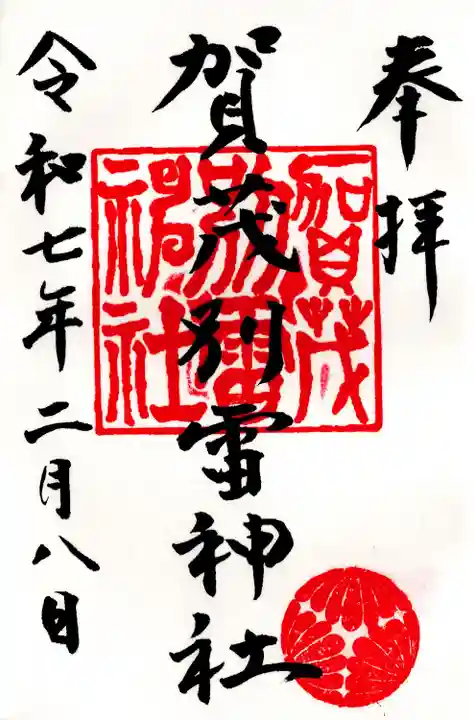 奉拝
賀茂別雷神社
令和七年二月八日
賀茂
別雷
神社